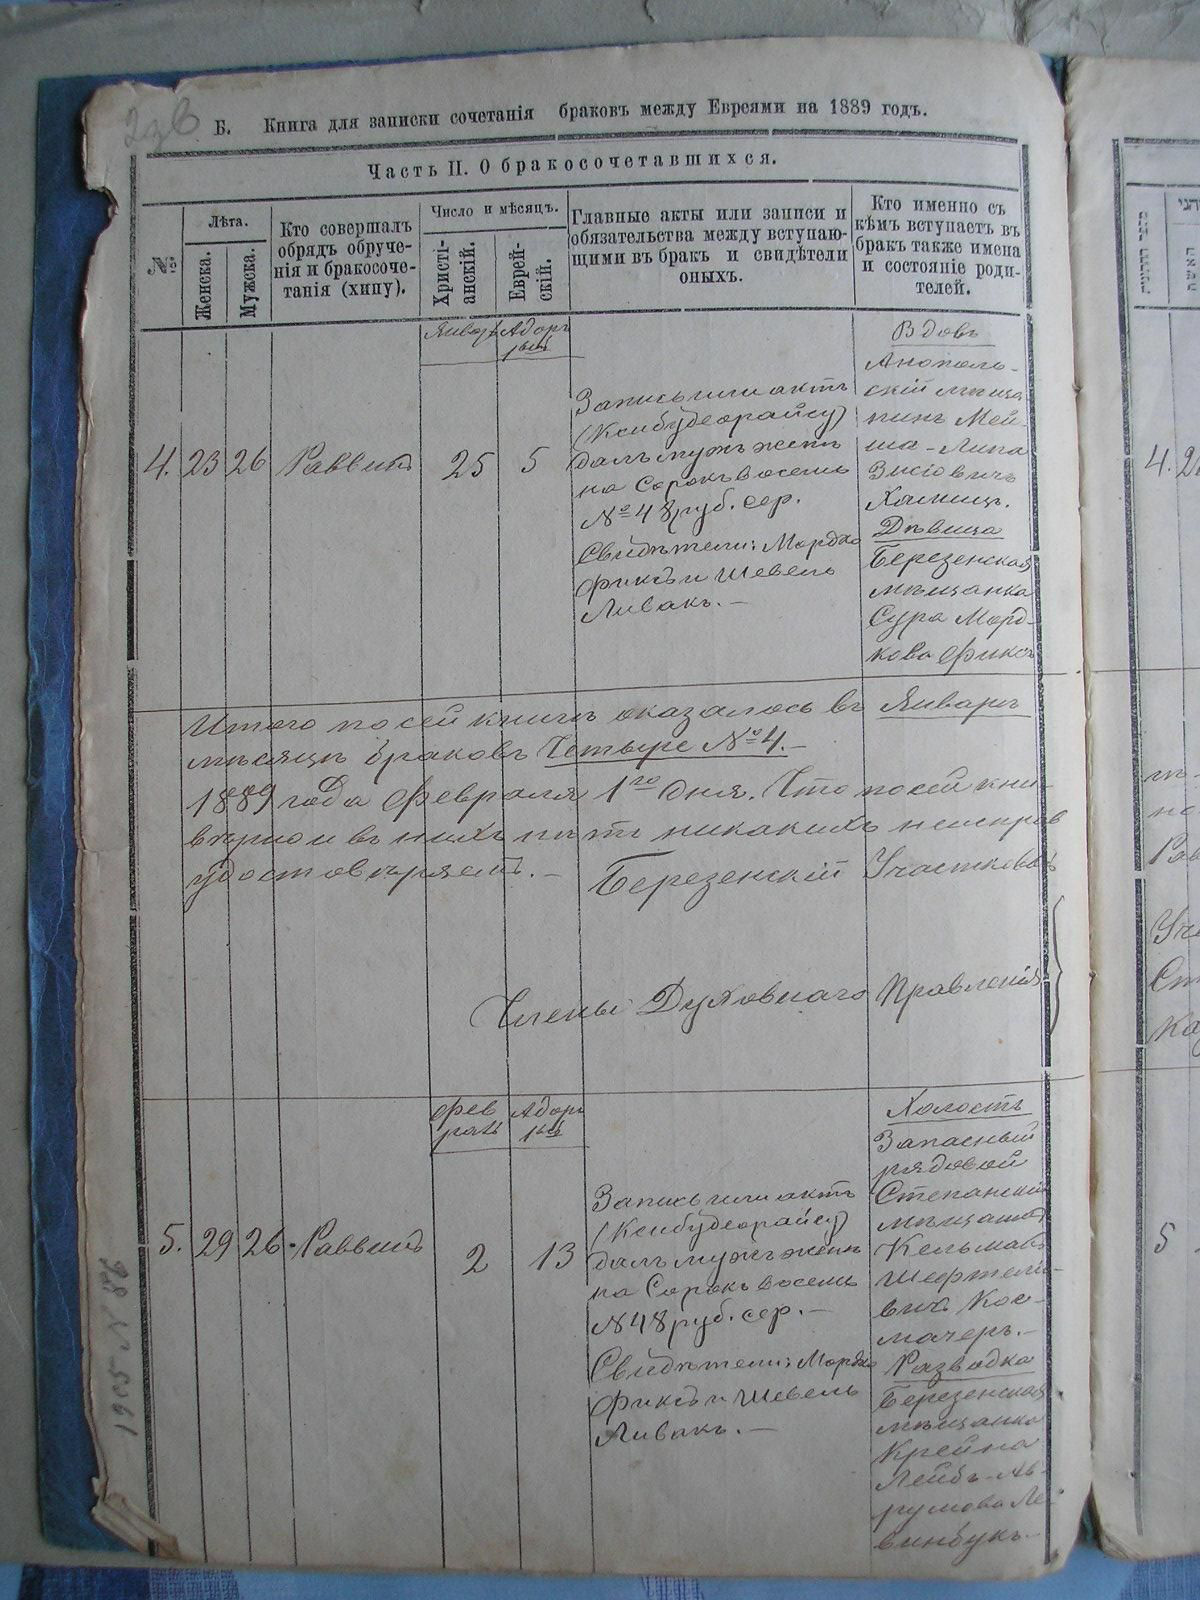 Б. Книга для записки сочетанія браковъ между Евреями на 1889 годъ.
Часть II. О бракосочетавшихся.
№
Лѣта.
Женска.
Мужска.
Кто совершалъ
обрядъ обруче-
нія и бракосоче-
танія (хипу).
Число и мѣсяцъ.
Христі-
анскій.
Еврей-
скій.
Главные акты или записи и
обязательства между вступаю-
щими въ бракъ и свидѣтели
оныхъ.
Кто именно съ
кѣмъ вступаетъ въ
бракъ также имена
и состояніе роди-
телей.
Январь
Адоръ
1ый
4.
23
26
Раввинъ
25
5
Запись или актъ
(Ксибудеорайсу)
далъ мужъ женѣ
на Сорокъ восемь
№ 48 руб. сер.
Свидѣтели: Мордко
Фиксъ и Шевель
Ливакъ. —
Вдовъ
Анополь-
скій мѣща
нинъ Мей-
ша - Липа
Зисіовичъ
Дѣвица
Березенская
мѣщанка
Сура Морд-
кова Фиксъ
Итого по сей книгѣ оказалось въ Январѣ
мѣсяцѣ браковъ Четыре № 4. —
1889 года февраля 1го дня. Что по сей кни-
вѣрно и въ нихъ нѣтъ никакихъ неисправ
удостовѣряемъ. — Березенскій Участковый
Члены Духовнаго Правленія
Фев
раль
Адоръ
1ый
5.
29
26
Раввинъ
2
13
Запись или актъ
(Ксибудеорайсу)
далъ мужъ женѣ
на Сорокъ восемь
№ 48 руб. сер. —
Свидѣтели: Мордко
Фиксъ и Шевель
Ливакъ. —
Холостъ
Запасный
рядовой
Степанскій
мѣщанинъ
Кельманъ
Шефтелио-
вичъ Кос-
мачеръ. —
Разводка
Березенская
мѣщанка
Крейна
Лейбъ-Аб-
румова Ле
винбукъ. —
1905 N 86
4.
5